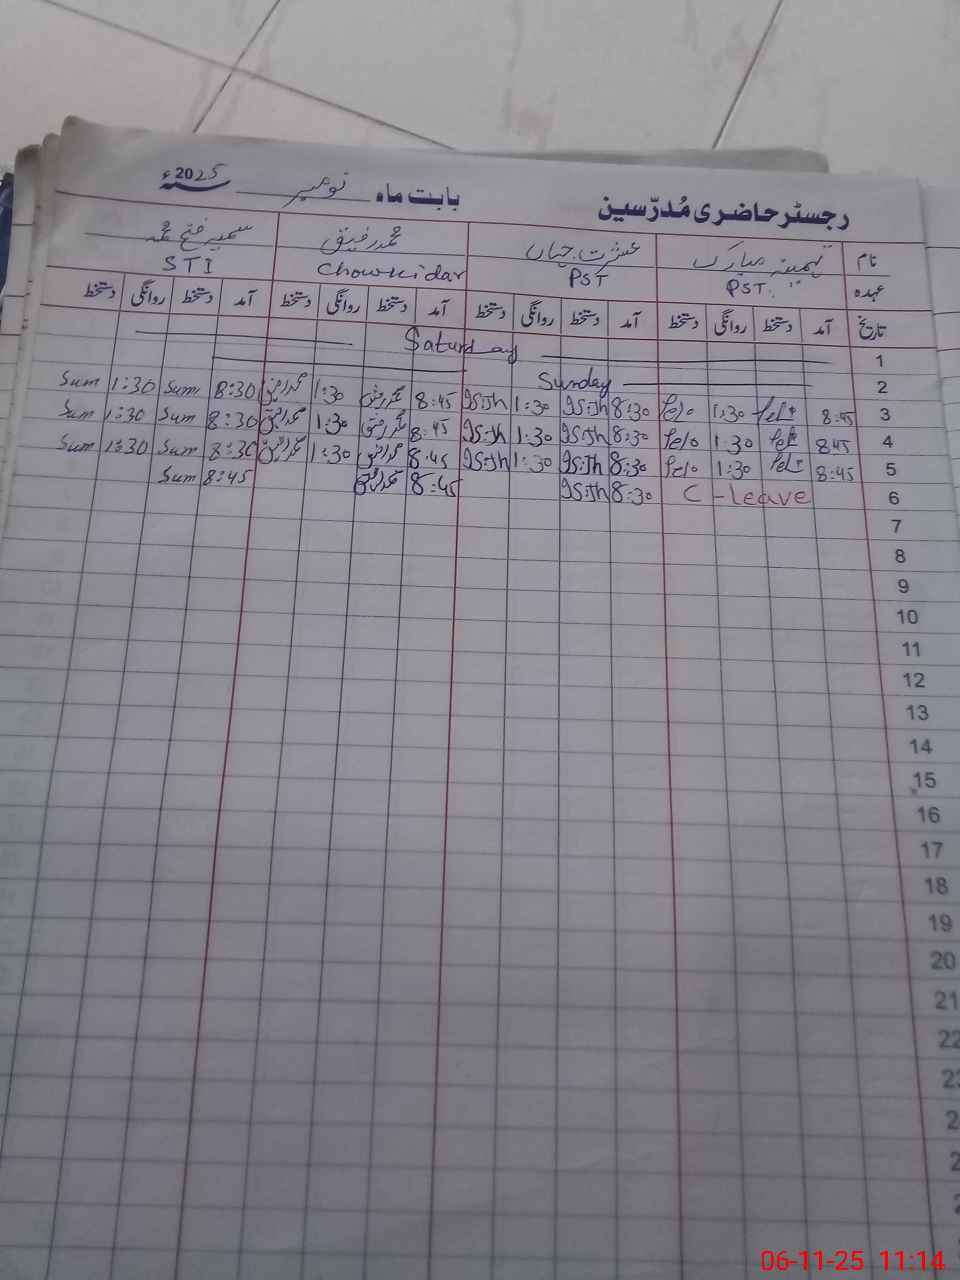 رجسٹر حاضری مُدرّسین بابت ماہ نومبر 2025ء
نام تہمینہ مبارک عشرت جہاں محمد رفیق سمیر فتح محمد
عہدہ PST. PST Chowkidar STI
تاریخ آمد دستخط روانگی دستخط آمد دستخط روانگی دستخط آمد دستخط روانگی دستخط آمد دستخط روانگی دستخط
1 Saturday
2 Sunday
3 8:45 1:30 8:30 1:30 8:45 محمد رفیق 1:30 محمد رفیق 8:30 Sum 1:30 Sum
4 845 1:30 8:30 1:30 8:45 محمد رفیق 1:30 محمد رفیق 8:30 Sum 1:30 Sum
5 8:45 1:30 8:30 1:30 8:45 محمد رفیق 1:30 محمد رفیق 8:30 Sum 1:30 Sum
6 C - Leave 8:30 8:45 محمد رفیق 8:45 Sum
7
8
9
10
11
12
13
14
15
16
17
18
19
20
21
22
06-11-25 11:14